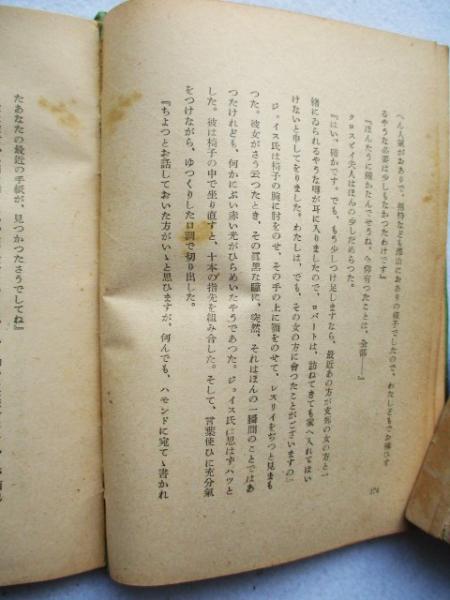 へん人氣がおありで、招待なども澤山におありの樣子でしたので、わたしどもでお補ひす
るやうな必要は少しもなかつたわけです』
『ほんたうに確かなんでせうね、今仰有つたことは、全部――』
クロスビイ夫人はほんの少しだめらつた。
『はい、確かです。でも、もう少しつけ足しますなら、最近あの方が支那の女の方と一
緒にゐられるやうな噂が耳に入りましたので、ロバートは、訪ねてきても家へ入れてはい
けないと申してをりました。わたしは、でも、その女の方に會つたことがございますの』
ジョイス氏は椅子の腕に肘をのせ、その手の上に顎をのせて、レスリイをぢつと見まも
つた。彼女がさう云つたとき、その眞黑な瞳に、突然、それはほんの一瞬間のことではあ
つたけれども、何かにぶい赤い光がひらめいたやうであつた。ジョイス氏は思はずハツと
した。彼は椅子の中で坐り直すと、十本の指先を組み合した。そして、言葉使ひに充分氣
をつけながら、ゆつくりした口調で切り出した。
『ちよつとお話しておいた方がいゝと思ひますが、何んでも、ハモンドに宛てゝ書かれ
174
たあなたの最近の手帳が、見つかつたさうでしてね』